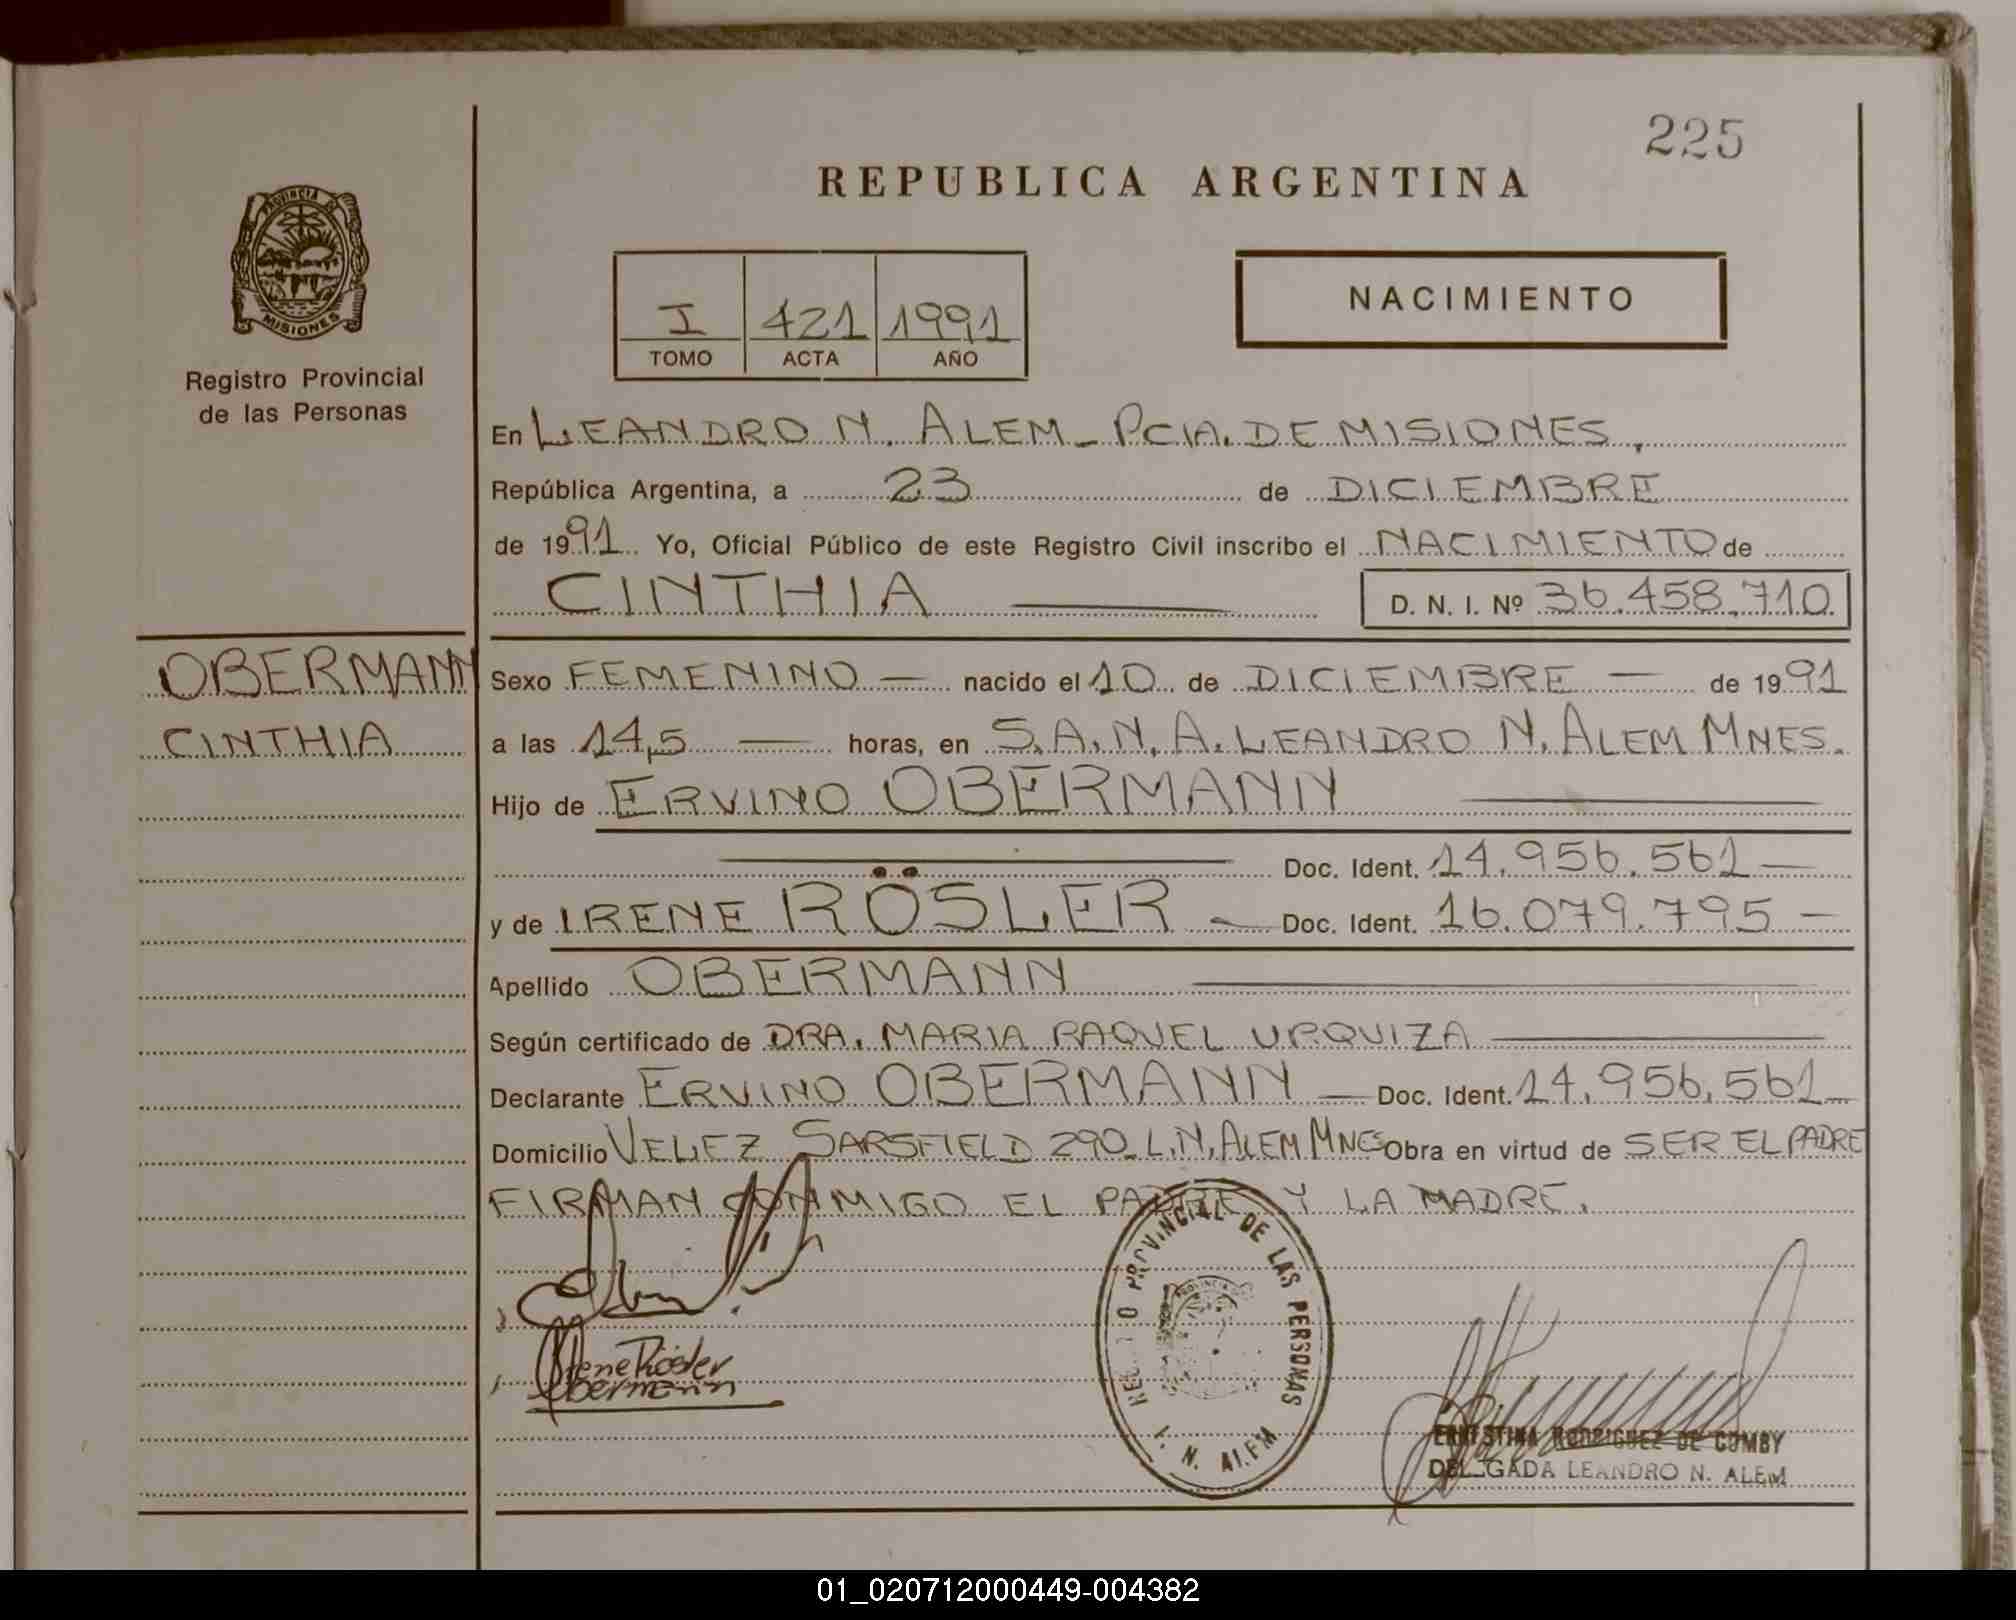 225
REPUBLICA ARGENTINA
PROVINCIA DE
MISIONES
Registro Provincial
de las Personas
I 421 1991
TOMO ACTA AÑO
NACIMIENTO
En LEANDRO N. ALEM - PCIA. DE MISIONES,
República Argentina, a 23 de DICIEMBRE
de 1991 Yo, Oficial Público de este Registro Civil inscribo el NACIMIENTO de
CINTHIA D. N. I. Nº 36.458.710
OBERMANN
CINTHIA
Sexo FEMENINO — nacido el 10 de DICIEMBRE — de 1991
a las 14,5 — horas, en S.A.N.A. LEANDRO N. ALEM MNES.
Hijo de ERVINO OBERMANN
Doc. Ident. 14.956.561 —
y de IRENE RÖSLER - Doc. Ident. 16.079.795 —
Apellido OBERMANN
Según certificado de DRA. MARIA RAQUEL URQUIZA
Declarante ERVINO OBERMANN — Doc. Ident. 14.956.561
Domicilio VELEZ SARSFIELD 290. L.N. ALEM MNES Obra en virtud de SER EL PADRE
FIRMAN CONMIGO EL PADRE Y LA MADRE.
Irene Rösler
Obermann
PROVINCIAL DE LAS PERSONAS
L. N. ALEM
ERNESTINA RODRIGUEZ DE COMBY
DELEGADA LEANDRO N. ALEM
01_020712000449-004382